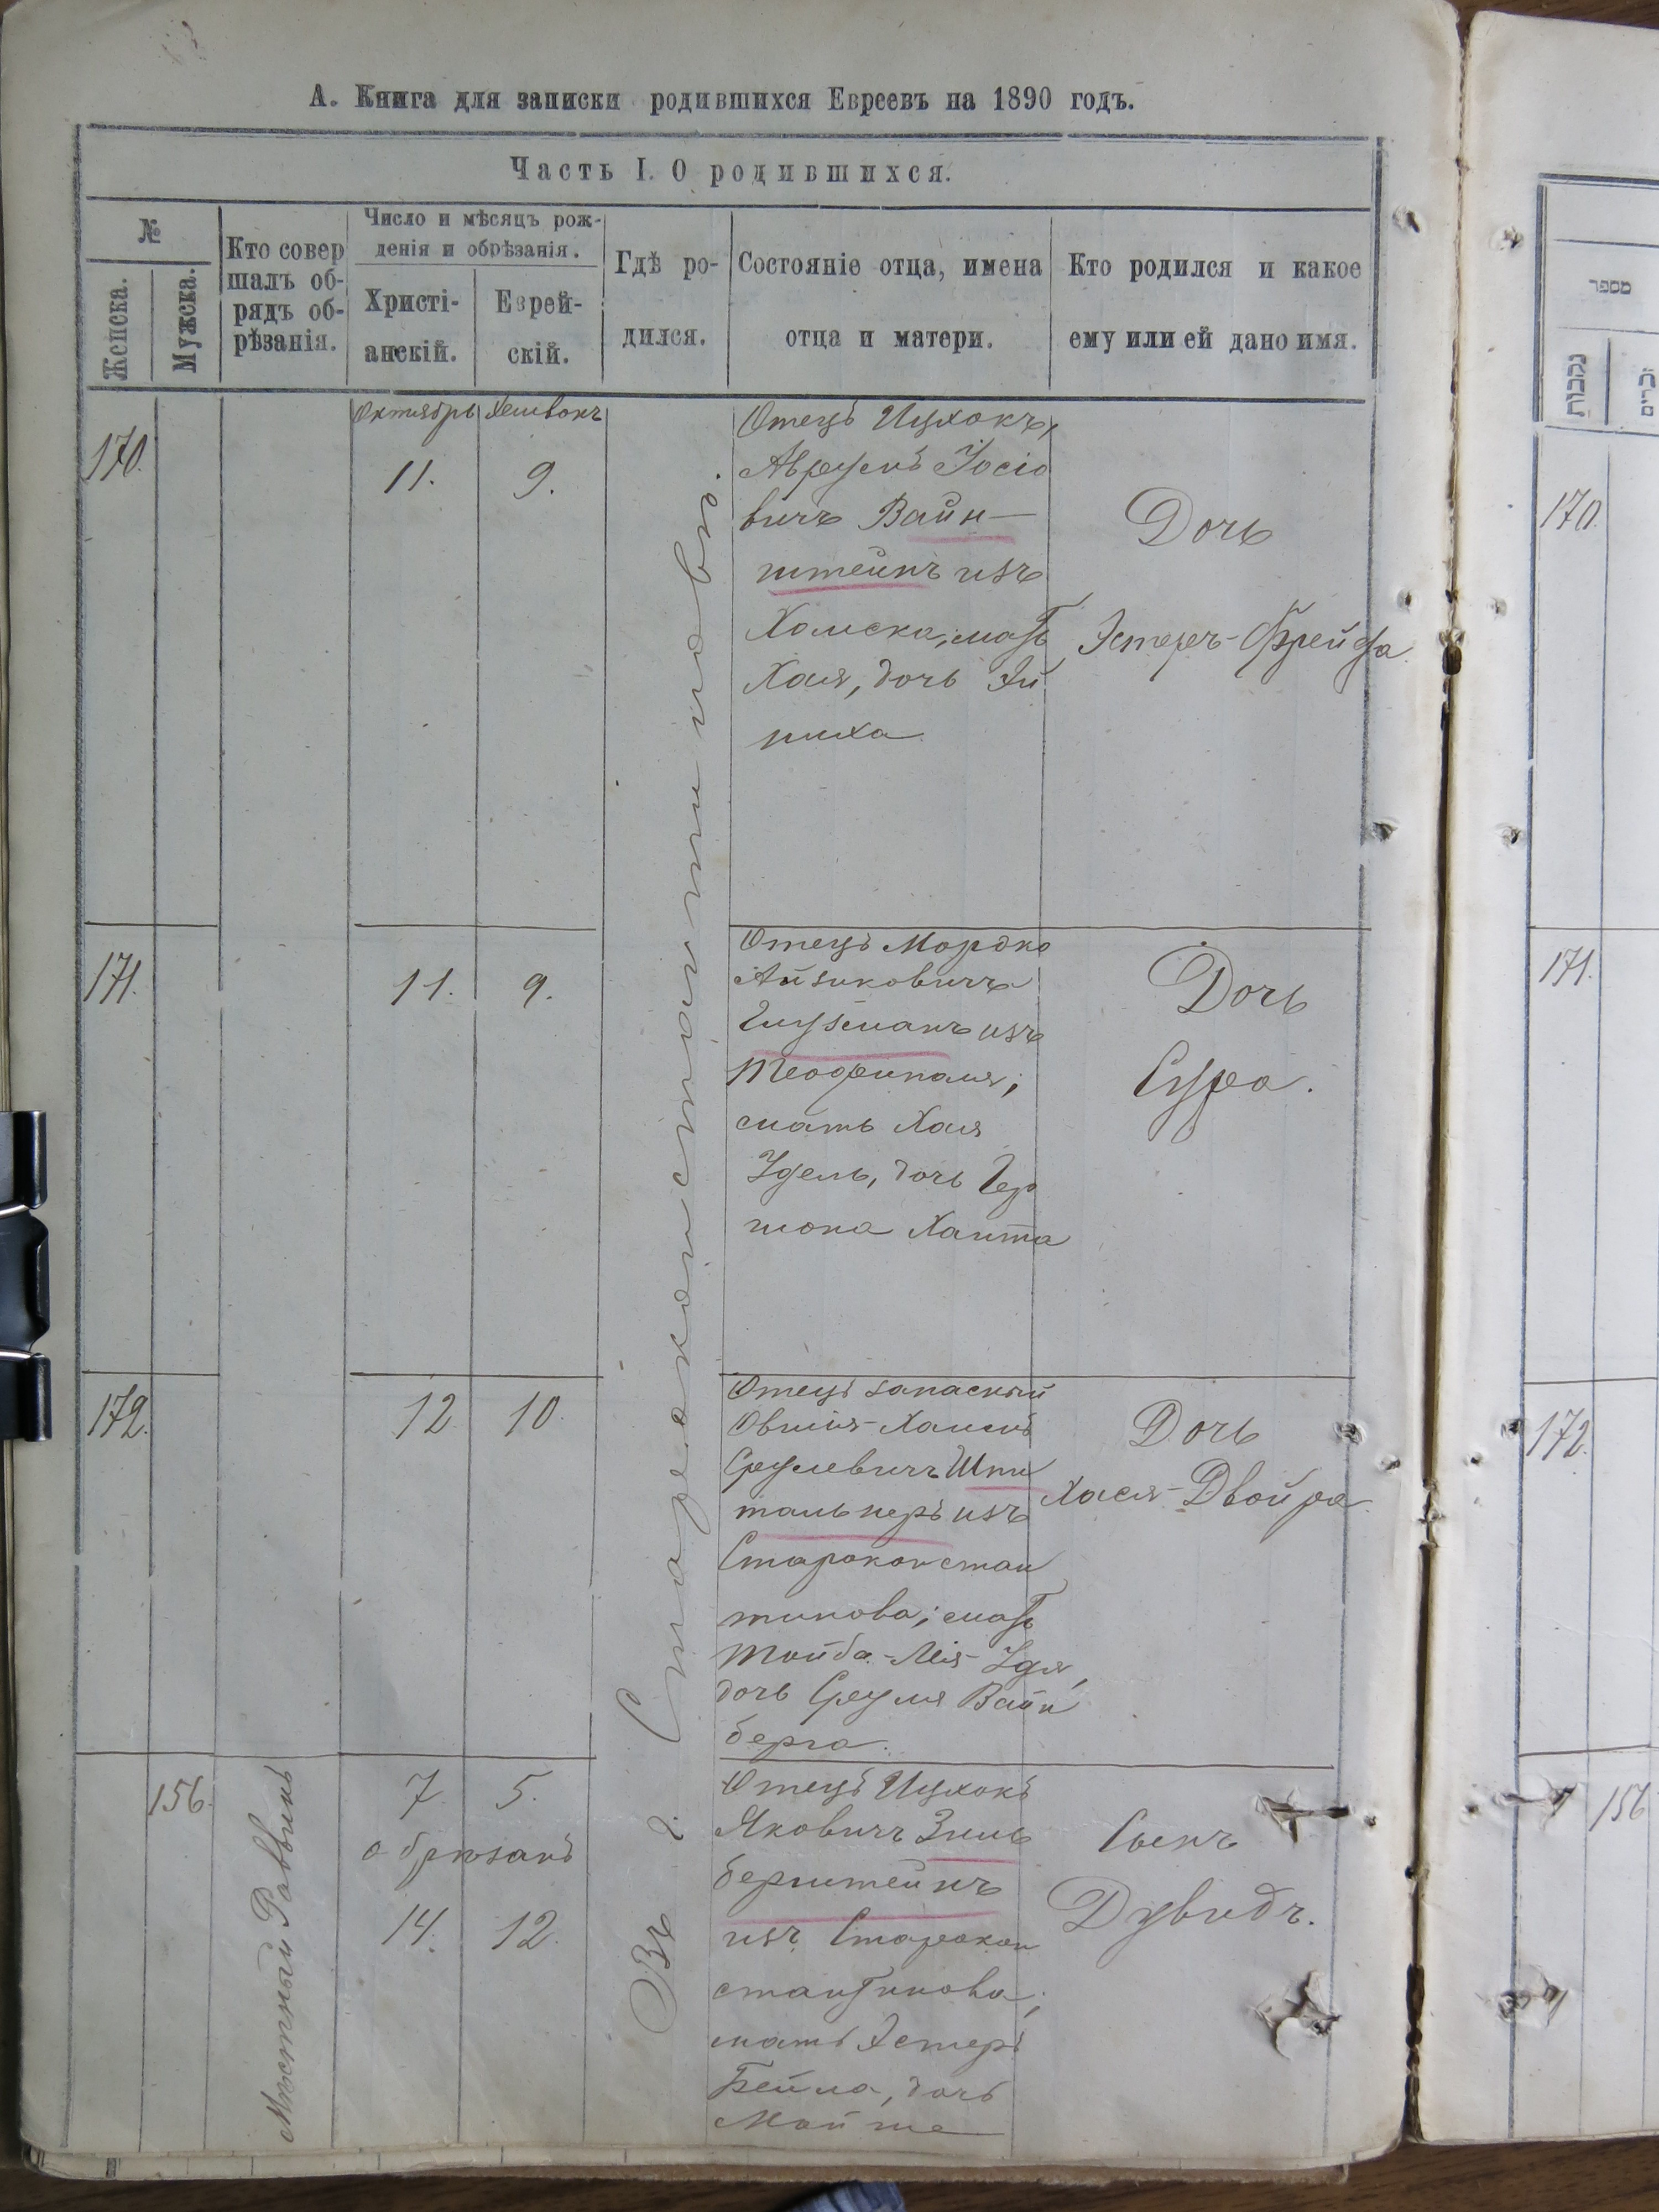 А. Книга для записки родившихся Евреевъ на 1890 годъ.
Часть I. О родившихся.
№
Женска.
Мужска.
Кто совер
шалъ об-
рядъ об-
рѣзанія.
Число и мѣсяцъ рож-
денія и обрѣзанія.
Христі-
анскій.
Еврей-
скій.
Гдѣ ро-
дился.
Состояніе отца, имена
отца и матери.
Кто родился и какое
ему или ей дано имя.
Въ г. Староконстантиновѣ.
170.
Октябрь
11.
Хешвонъ
9.
Отецъ Ицхокъ,
Аврумъ Іосіо
вичъ Вайн-
штейнъ изъ
Хомска, мать
Хая, дочь Эй
шиха
Дочь
Эстеръ-Фрейда.
171.
11.
9.
Отецъ Мордко
Айзиковичъ
Глузманъ изъ
Теофиполя;
мать Хая
Удель, дочь Гер
шона Ханта
Дочь
Сура.
172.
12
10.
Отецъ запасный
Овшія-Хаимъ
Срулевичъ Шпи
тальнеръ изъ
Староконстан
тинова; мать
Тойба-Лея-Удя,
дочь Сруля Вайн
берга.
Дочь
Хася-Двойра.
156.
Мѣстный Раввинъ
7
5.
обрѣзанъ
14.
12.
Отецъ Ицхокъ
Яковичъ Зиль
берштейнъ
изъ Старокон
стантинова;
мать Эстеръ
Бейла, дочь
Мойше
Сынъ
Дувидъ.
מספר
נקבות
זכרים
170.
171.
172.
156